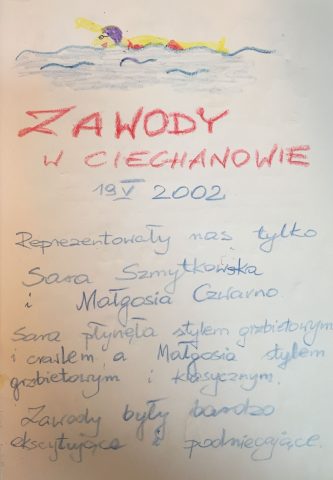 ZAWODY
W CIECHANOWIE
19 V 2002
Reprezentowały nas tylko
Sara Szmytkowska
i Małgosia Czwarno.
Sara płynęła stylem grzbietowym
i crawlem, a Małgosia stylem
grzbietowym i klasycznym.
Zawody były bardzo
ekscytujące i podniecające.